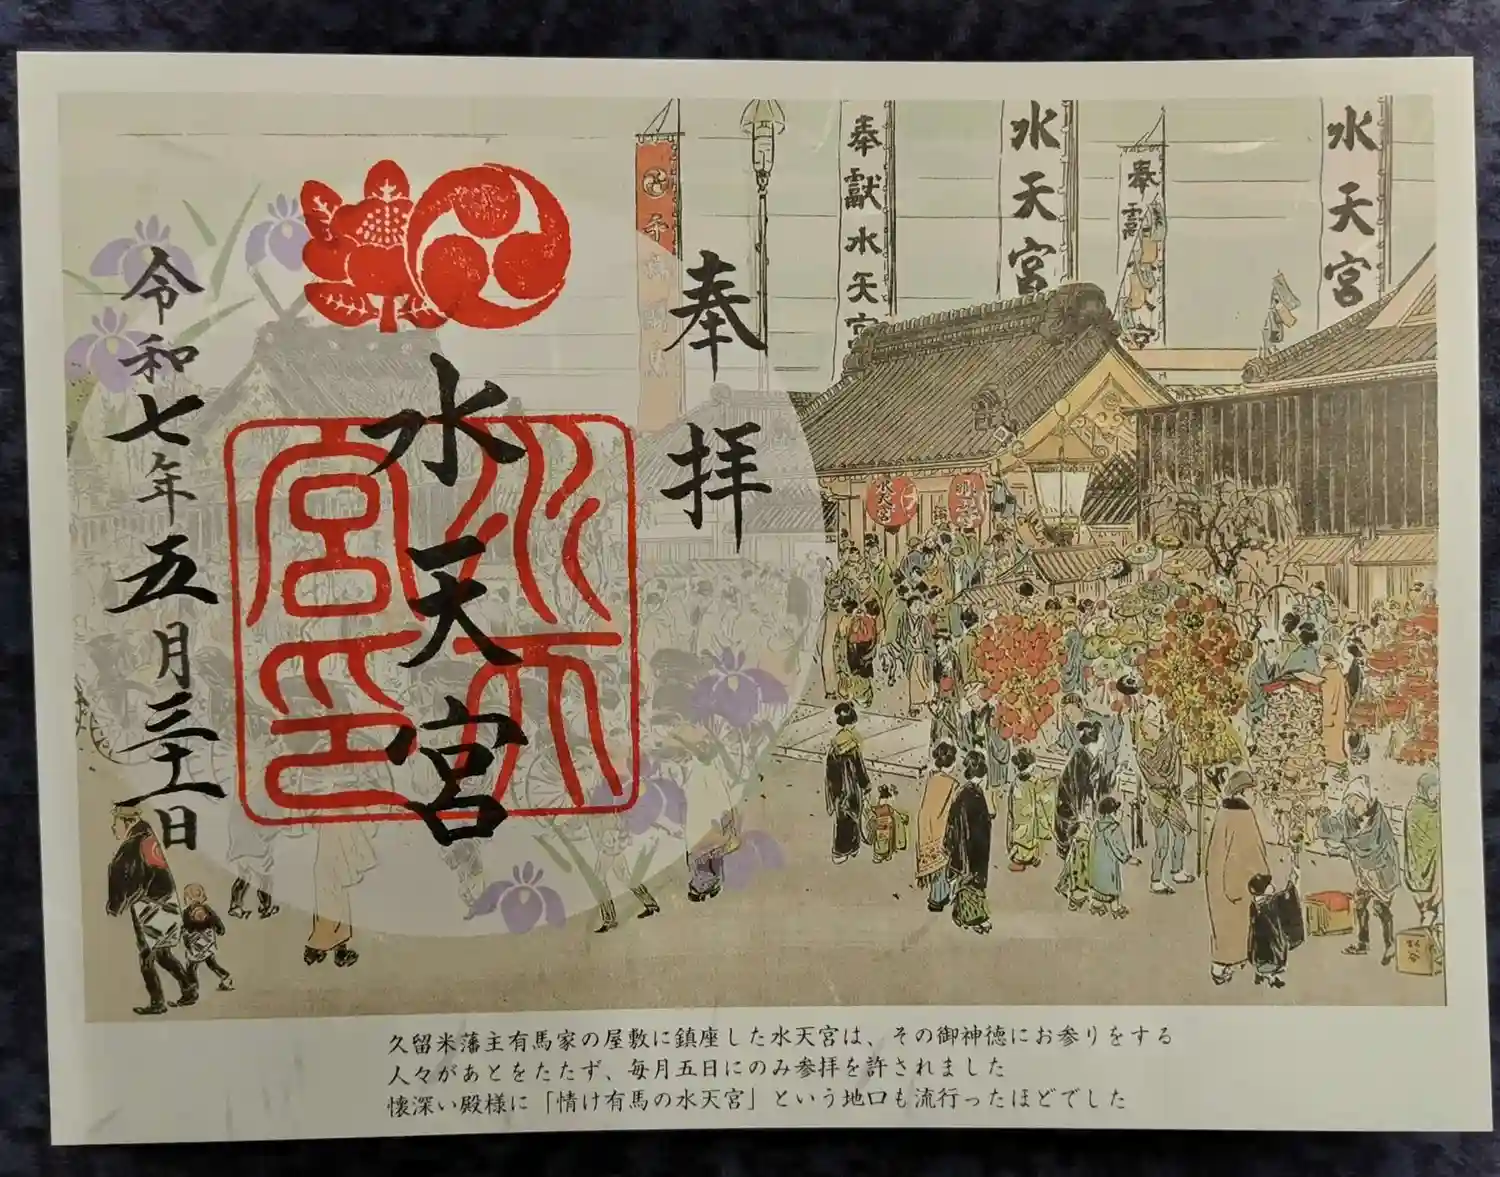 奉拝
水天宮
令和七年五月三十一日
水天宮印
奉獻水天宮
水天宮
水天宮
水天宮
久留米藩主有馬家の屋敷に鎮座した水天宮は、その御神徳にお参りをする
人々があとをたたず、毎月五日にのみ参拝を許されました
懐深い殿様に「情け有馬の水天宮」という地口も流行ったほどでした